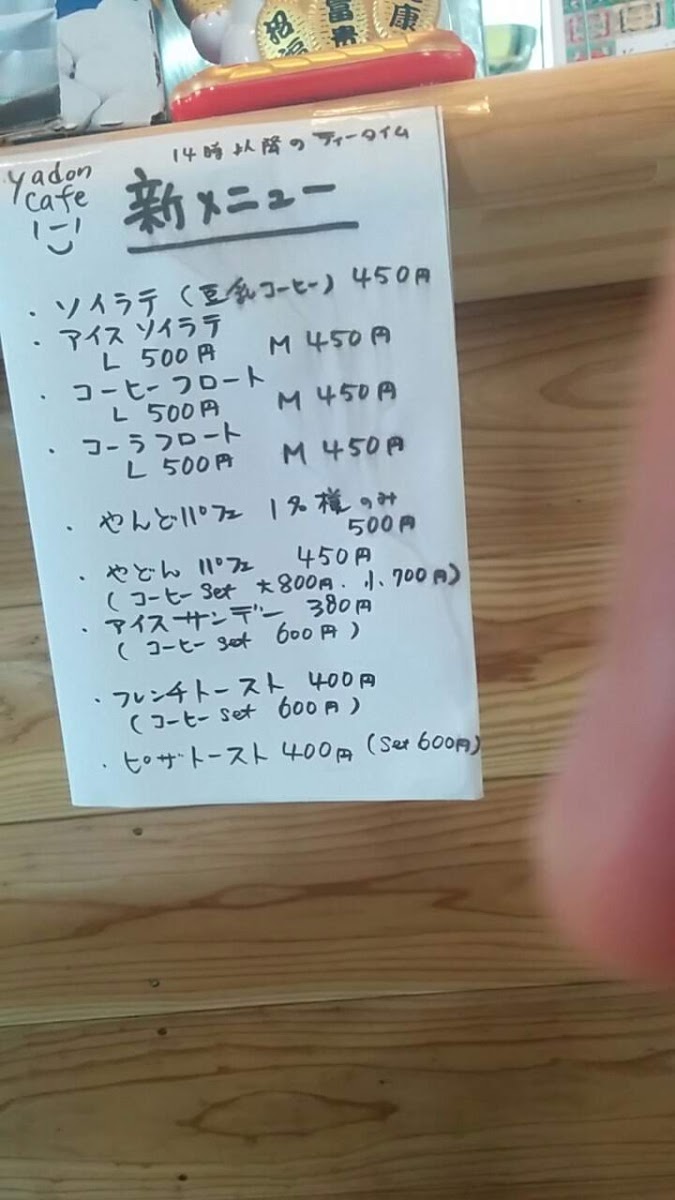 招福
富貴
康
14時以降のティータイム
yadon
cafe
新メニュー
・ソイラテ（豆乳コーヒー）450円
・アイスソイラテ
L 500円 M 450円
・コーヒーフロート
L 500円 M 450円
・コーラフロート
L 500円 M 450円
・やんどパフェ 1名様のみ
500円
・やどんパフェ 450円
（コーヒーset 大800円、小700円）
・アイスサンデー 380円
（コーヒーset 600円）
・フレンチトースト 400円
（コーヒーset 600円）
・ピザトースト 400円（set 600円）